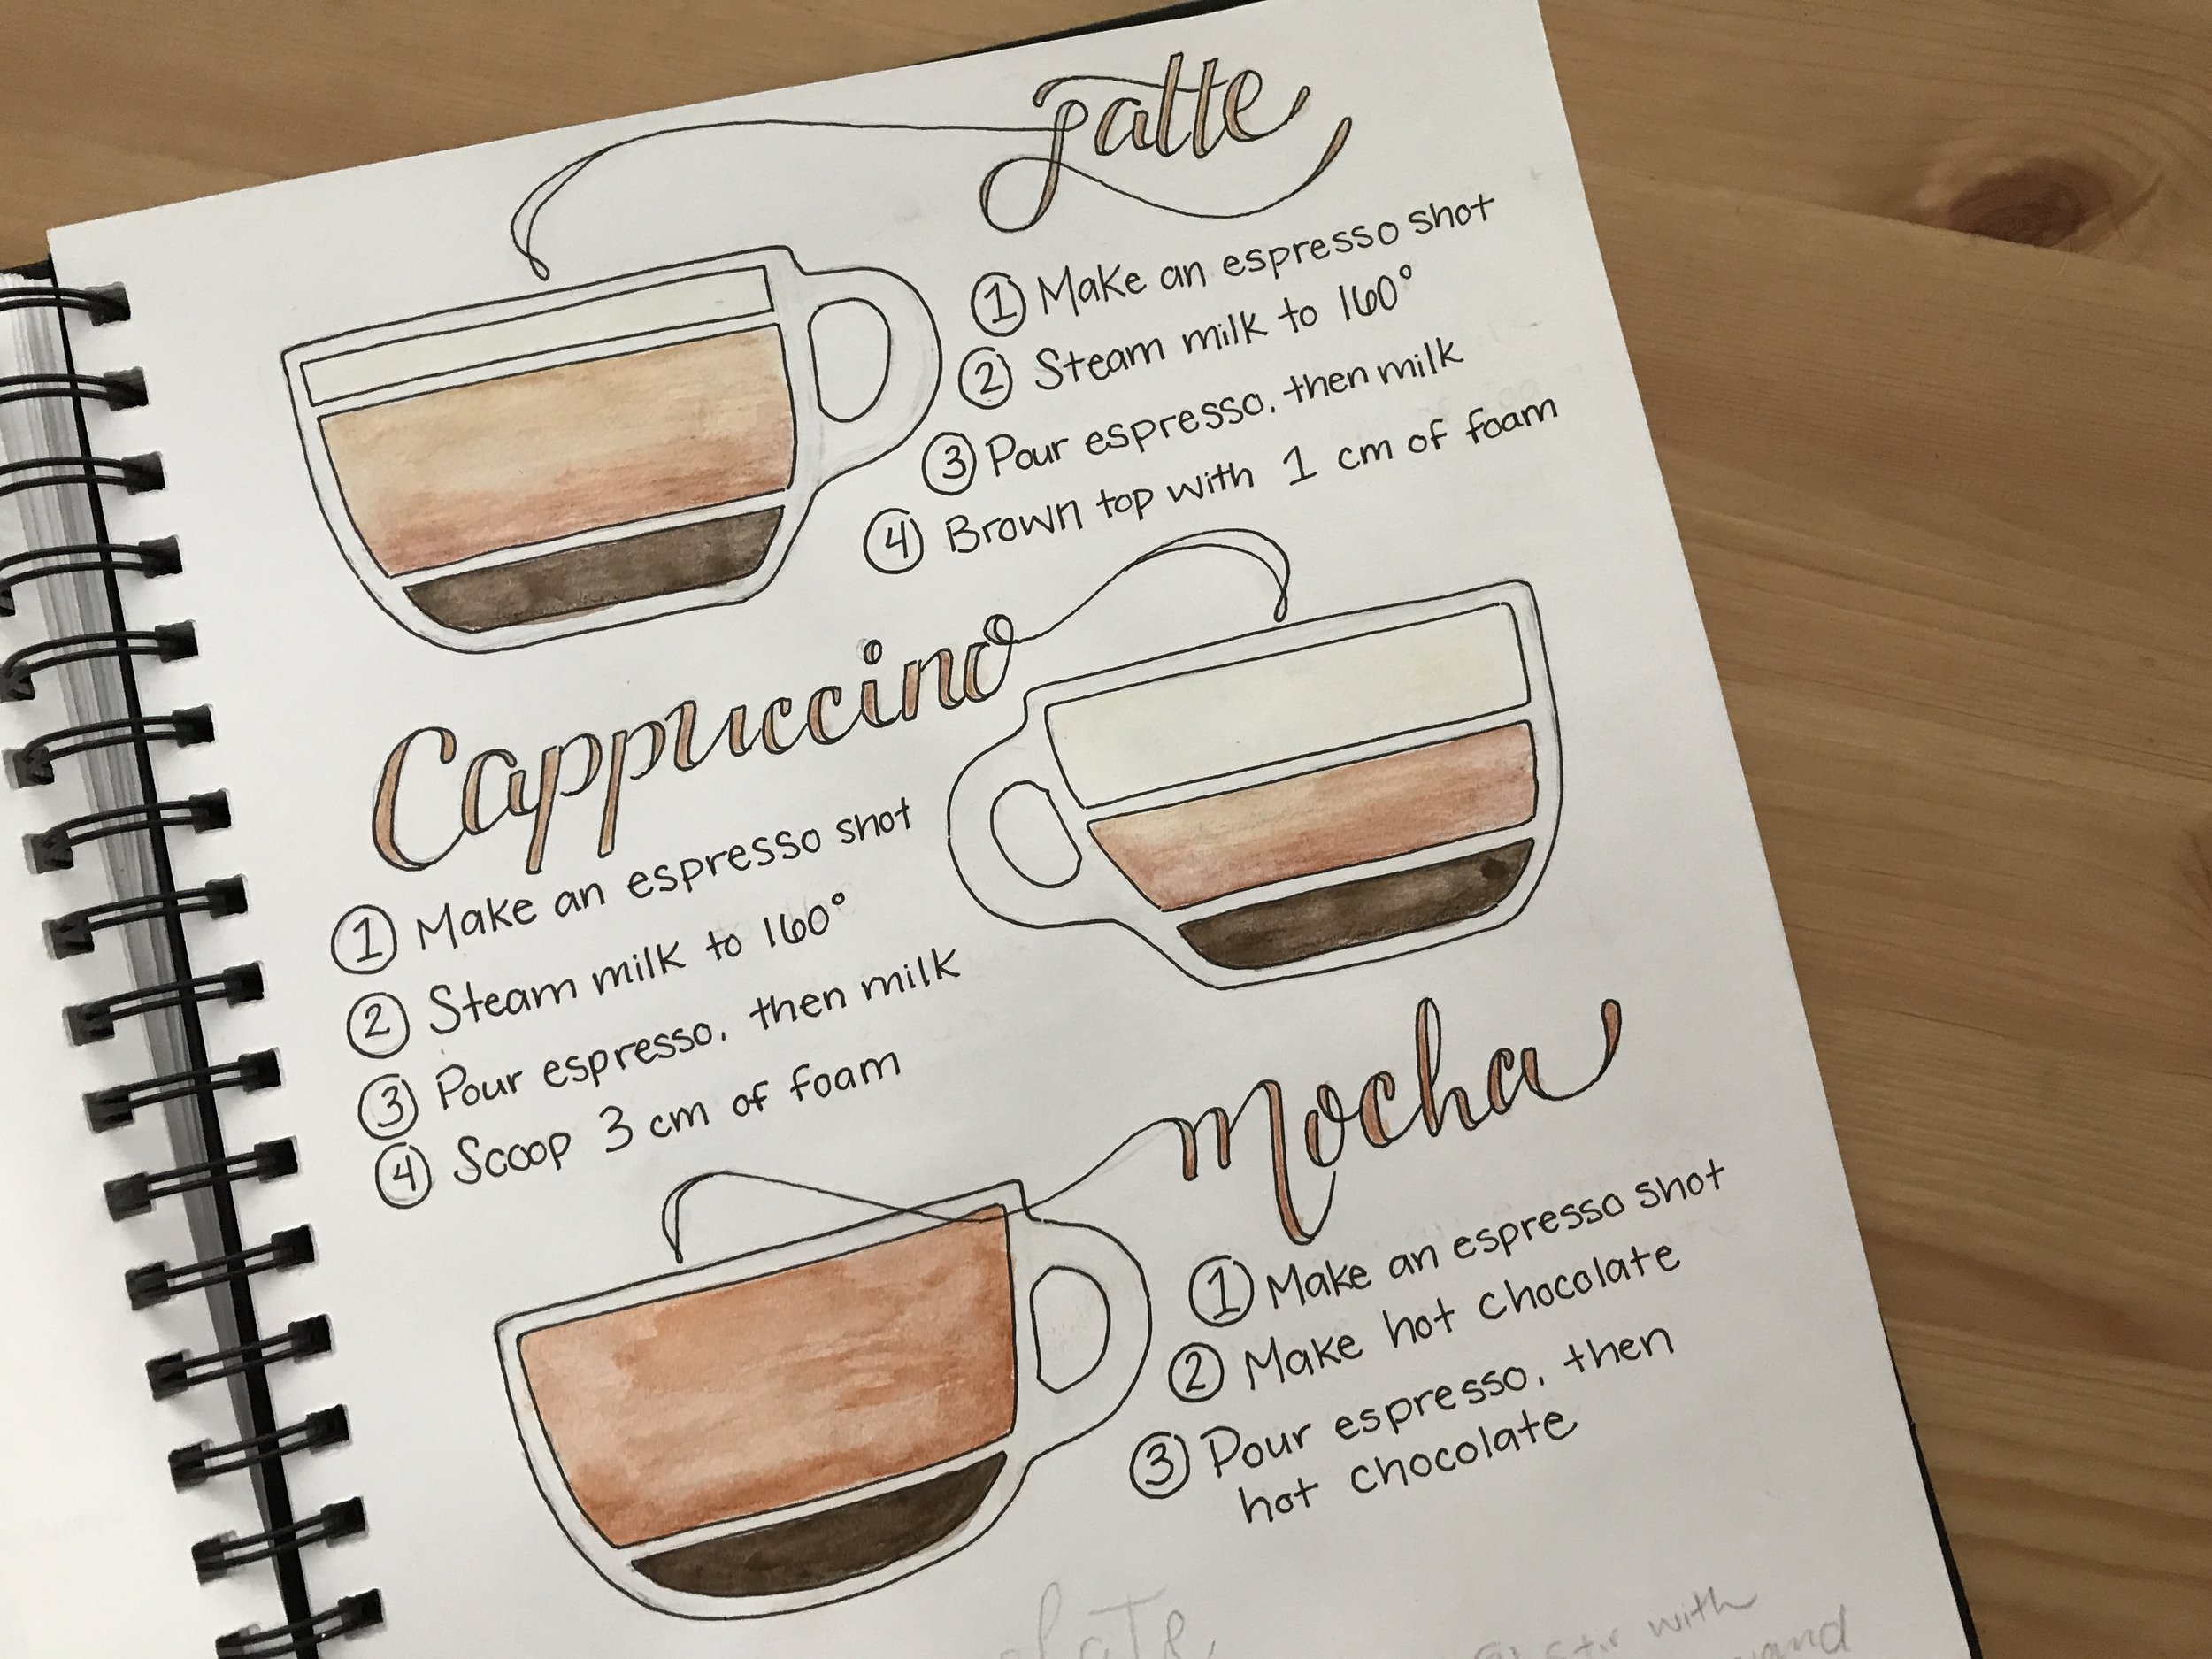 Latte
① Make an espresso shot
② Steam milk to 160°
③ Pour espresso, then milk
④ Brown top with 1 cm of foam
Cappuccino
① Make an espresso shot
② Steam milk to 160°
③ Pour espresso, then milk
④ Scoop 3 cm of foam
Mocha
① Make an espresso shot
② Make hot chocolate
③ Pour espresso, then
hot chocolate
stir with